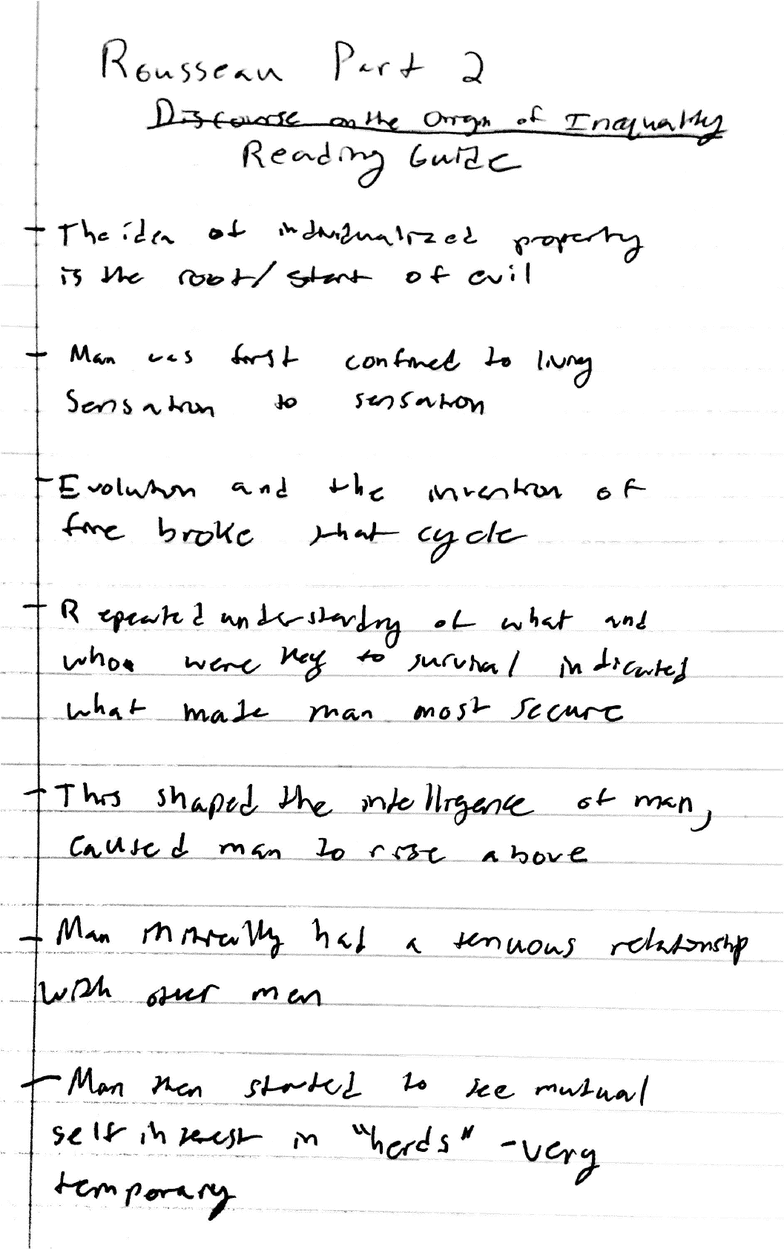 Rousseau Part 2
Discourse on the Origin of Inequality
Reading Guide
- The idea of individualized property
is the root/start of evil
- Man was first confined to living
sensation to sensation
- Evolution and the invention of
fire broke that cycle
- Repeated understanding of what and
who were key to survival indicated
what made man most secure
- This shaped the intelligence of man,
caused man to rise above
- Man initially had a tenuous relationship
with other men
- Man then started to see mutual
self interest in "herds" - very
temporary